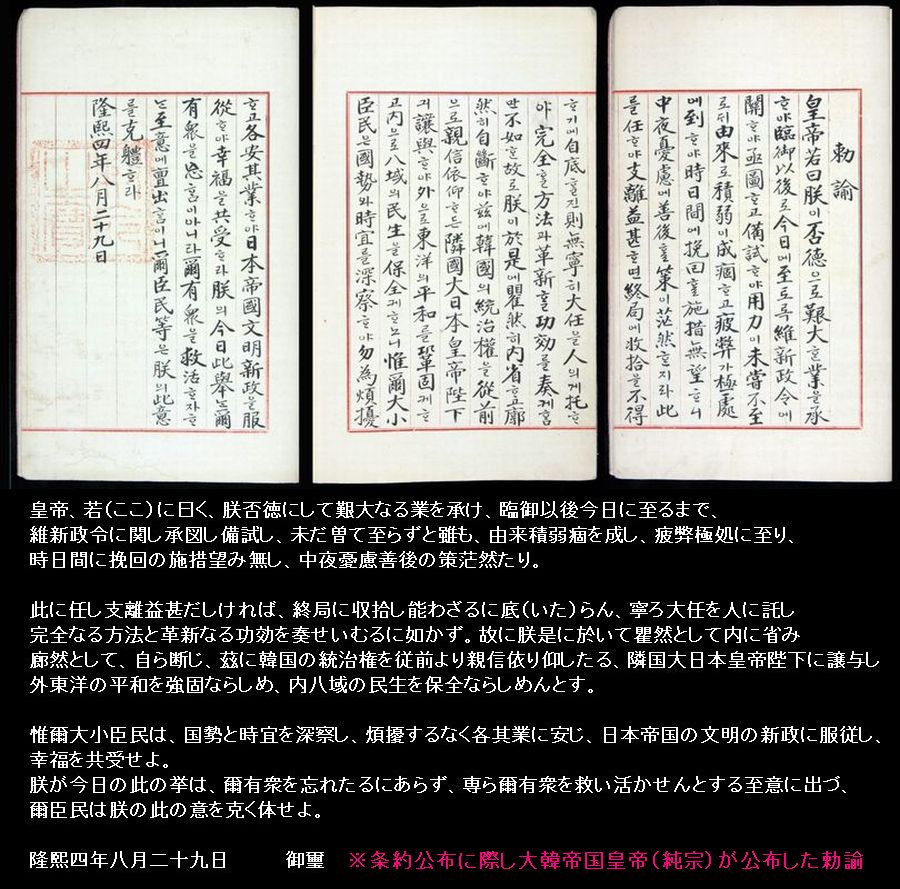 勅諭
皇帝若曰朕이否德으로艱大ᄒᆞᆫ業을承
ᄒᆞ야臨御以後로今日에至도록維新政令에
關ᄒᆞ야亟圖ᄒᆞ고備試ᄒᆞ야用力이未嘗不至
로되由來로積弱이成痼ᄒᆞ고疲弊가極處
에到ᄒᆞ야時日間에挽回ᄒᆞᆯ施措無望ᄒᆞ니
中夜憂慮에善後ᄒᆞᆯ策이茫然ᄒᆞᆫ지라此
를任ᄒᆞ야支離益甚ᄒᆞ면終局에收拾을不得
ᄒᆞ기에自底ᄒᆞᆯ진則無寧히大任을人의게托ᄒᆞ
야完全ᄒᆞᆯ方法과革新ᄒᆞᆯ功効를奏케ᄒᆞᆷ
만不如ᄒᆞᆫ故로朕이於是에瞿然히內省ᄒᆞ고廓
然히自斷ᄒᆞ야玆에韓國의統治權을從前
으로親信依仰ᄒᆞ든隣國大日本皇帝陛下
긔讓與ᄒᆞ야外으로東洋의平和를鞏固케ᄒᆞ
고內으로八域의民生을保全케ᄒᆞ노니惟爾大小
臣民은國勢와時宜를深察ᄒᆞ야勿為煩擾
ᄒᆞ고各安其業ᄒᆞ야日本帝國文明新政을服
從ᄒᆞ야幸福을共受ᄒᆞ라朕의今日此擧ᄂᆞᆫ爾
有衆을忘ᄒᆞᆷ이아니라爾有衆을救活ᄒᆞ자ᄒᆞ
ᄂᆞᆫ至意에亶出ᄒᆞᆷ이니爾臣民等은朕의此意
를克軆ᄒᆞ라
隆熙四年八月二十九日
皇帝、若(ここ)に曰く、朕否徳にして艱大なる業を承け、臨御以後今日に至るまで、
維新政令に関し承図し備試し、未だ曽て至らずと雖も、由来積弱痼を成し、疲弊極処に至り、
時日間に挽回の施措望み無し、中夜憂慮善後の策茫然たり。
此に任し支離益甚だしければ、終局に収拾し能わざるに底(いた)らん、寧ろ大任を人に託し
完全なる方法と革新なる功効を奏せいむるに如かず。故に朕是に於いて瞿然として内に省み
廊然として、自ら断じ、茲に韓国の統治権を従前より親信依り仰したる、隣国大日本皇帝陛下に譲与し
外東洋の平和を強固ならしめ、内八域の民生を保全ならしめんとす。
惟爾大小臣民は、国勢と時宜を深察し、煩擾するなく各其業に安じ、日本帝国の文明の新政に服従し、
幸福を共受せよ。
朕が今日の此の挙は、爾有衆を忘れたるにあらず、専ら爾有衆を救い活かせんとする至意に出づ、
爾臣民は朕の此の意を克く体せよ。
隆熙四年八月二十九日　御璽　※条約公布に際し大韓帝国皇帝(純宗)が公布した勅諭